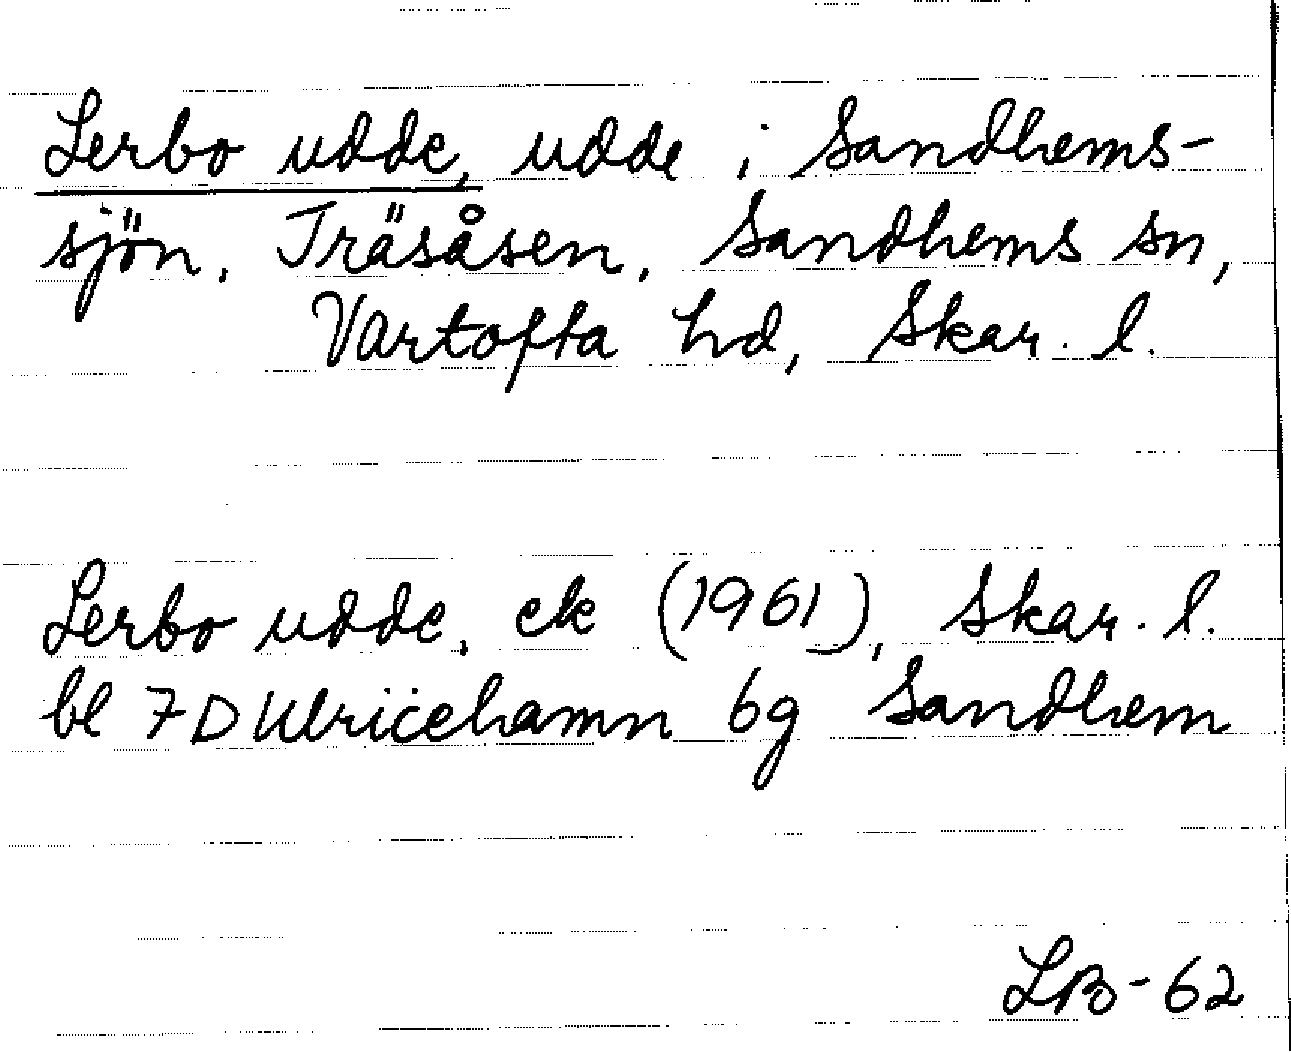 Lerbo udde, udde i Sandhems-
sjön, Träsåsen, Sandhems sn,
Vartofta hd, Skar. l.
Lerbo udde, ek (1961), Skar. l.
bl 7D Ulricehamn 6g Sandhem
LB-62